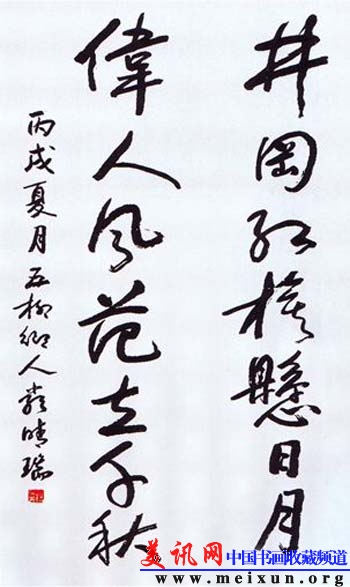 井岡红旗懸日月
偉人风范立千秋
丙戌夏月五柳鄉人
美讯网 中国书画收藏频道
www.meixun.org